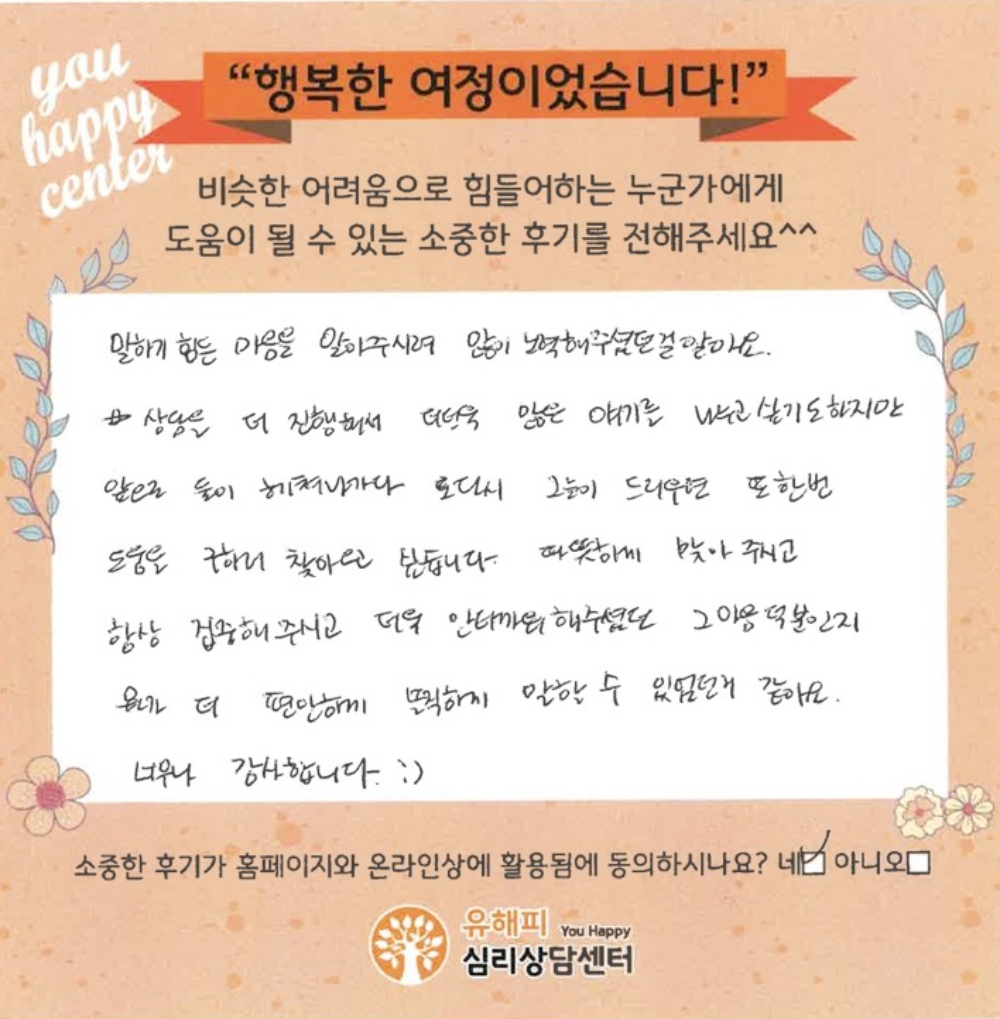 you
happy
center
“행복한 여정이었습니다!”
비슷한 어려움으로 힘들어하는 누군가에게
도움이 될 수 있는 소중한 후기를 전해주세요^^
말하기 힘든 마음을 알아주시려 많이 노력해주셨던걸 알아요.
상담을 더 진행해서 더더욱 많은 얘기를 나누고 싶기도하지만
앞으로 둘이 헤쳐나가다 또다시 그늘이 드리우면 또 한번
도움을 구하러 찾아오고 싶습니다. 따뜻하게 맞아 주시고
항상 집중해 주시고 더욱 안타까워 해주셨던 그 마음 덕분인지
더 편안하게 솔직하게 말할 수 있었던거 같아요.
너무나 감사합니다. :)
소중한 후기가 홈페이지와 온라인상에 활용됨에 동의하시나요? 네☑ 아니오☐
유해피 You Happy
심리상담센터